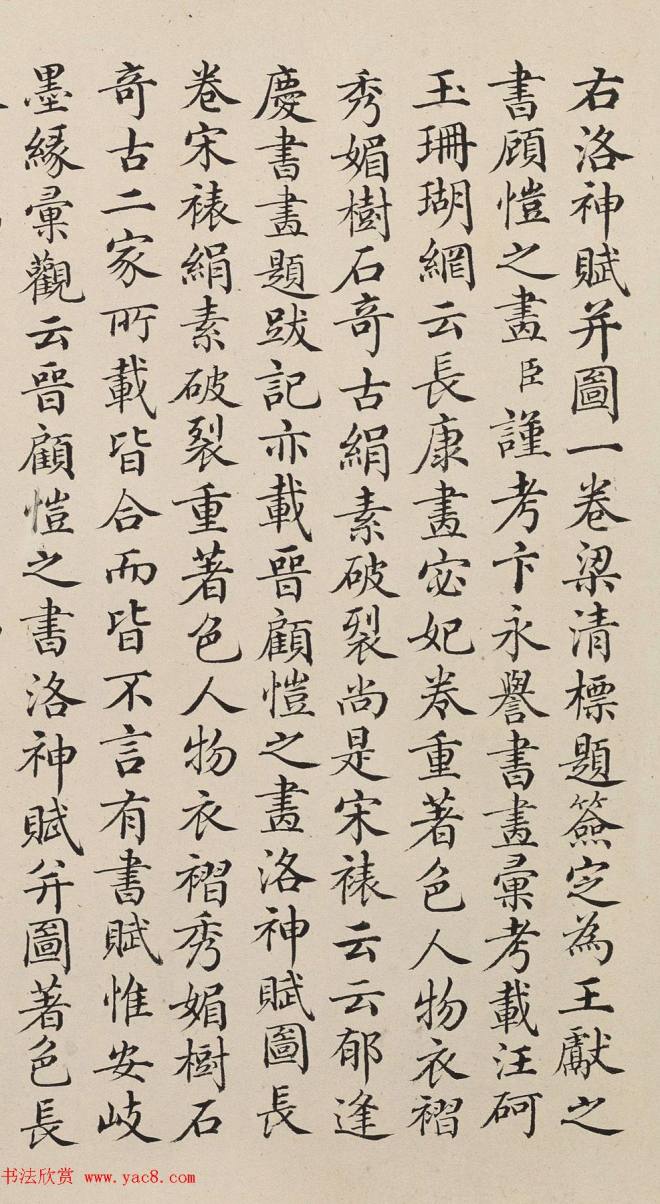 右洛神賦并圖一卷梁清標題簽定為王獻之
書顧愷之畫臣謹考卞永譽書畫彙考載汪砢
玉珊瑚網云長康畫宓妃卷重著色人物衣褶
秀媚樹石奇古絹素破裂尚是宋裱云云郁逢
慶書畫題跋記亦載晉顧愷之畫洛神賦圖長
卷宋裱絹素破裂重著色人物衣褶秀媚樹石
奇古二家所載皆合而皆不言有書賦惟安岐
墨緣彙觀云晉顧愷之書洛神賦并圖著色長
书法欣赏 www.yac8.com